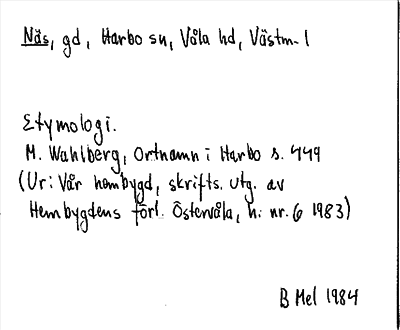 Näs, gd, Harbo sn, Våla hd, Västm. l
Etymologi.
M. Wahlberg, Ortnamn i Harbo s. 449
(Ur: Vår hembygd, skrifts. utg. av
Hembygdens förl. Östervåla, h. nr. 6 1983)
B Mel 1984